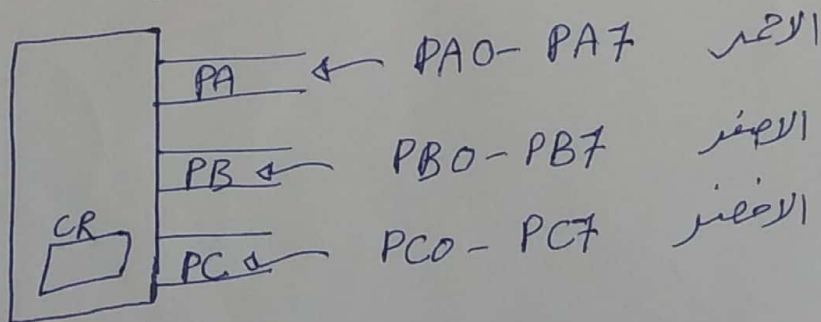 PA ← PA0 - PA7 الاحمر
PB ← PB0 - PB7 الاصفر
CR
PC ← PC0 - PC7 الاخضر